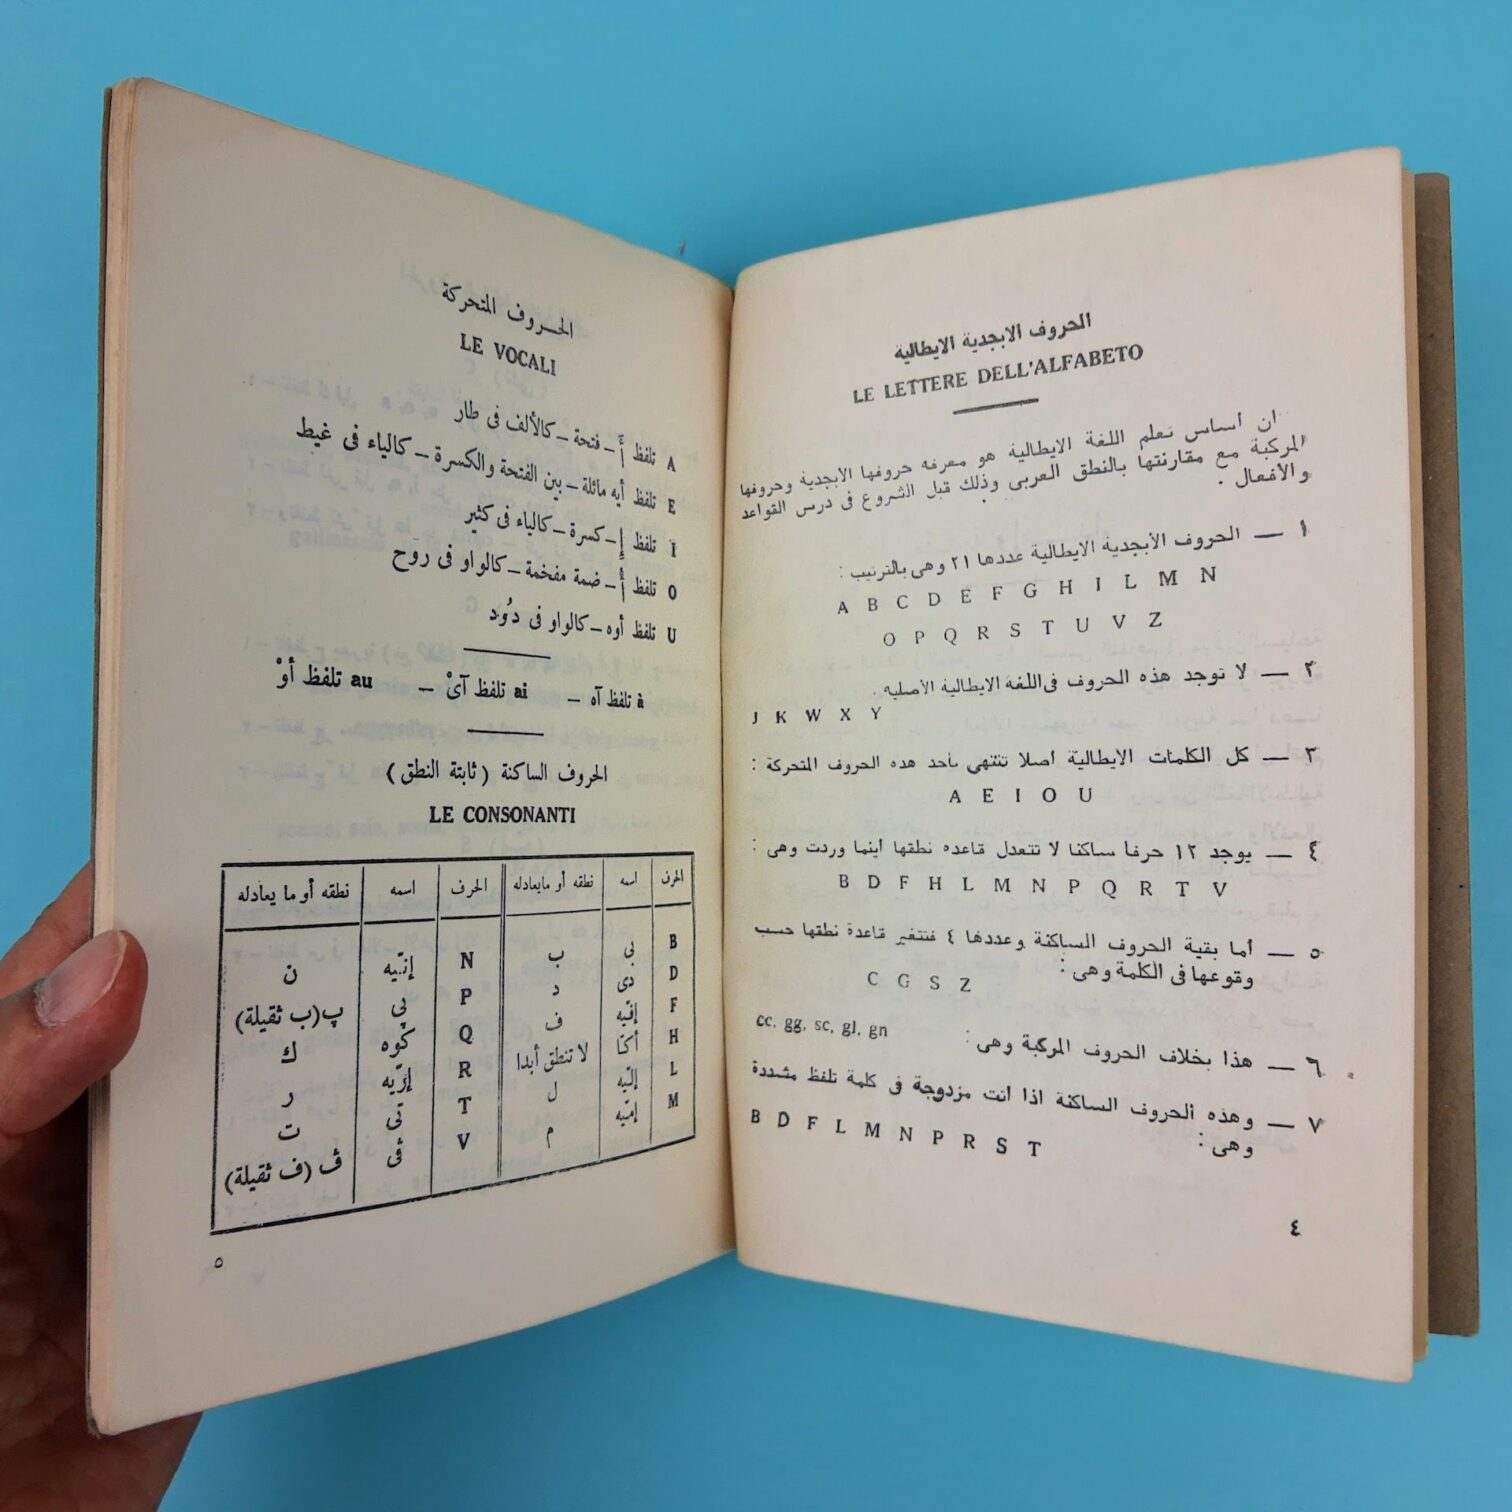 الحروف الابجدية الايطالية
LE LETTERE DELL'ALFABETO
ان اساس تعلم اللغة الايطالية هو معرفه حروفها الابجدية وحروفها
المركبة مع مقارنتها بالنطق العربى وذلك قبل الشروع فى درس القواعد
والافعال .
١ — الحروف الابجدية الايطالية عددها ٢١ وهى بالترتيب :
A B C D E F G H I L M N
O P Q R S T U V Z
٢ — لا توجد هذه الحروف فى اللغة الايطالية الاصليه .
J K W X Y
٣ — كل الكلمات الايطالية اصلا تنتهى بأحد هده الحروف المتحركة :
A E I O U
٤ — يوجد ١٢ حرفا ساكنا لا تتعدل قاعده نطقها اينما وردت وهى :
B D F H L M N P Q R T V
٥ — أما بقية الحروف الساكنة وعددها ٤ فتتغير قاعدة نطقها حسب
وقوعها فى الكلمة وهى : C G S Z
٦ — هذا بخلاف الحروف المركبة وهى : cc, gg, sc, gl, gn
٧ — وهذه الحروف الساكنة اذا اتت مزدوجة فى كلمة تلفظ مشددة
وهى : B D F L M N P R S T
٤
الحروف المتحركة
LE VOCALI
A تلفظ أَ — فتحة — كالألف فى طار
E تلفظ أيه مائلة — بين الفتحة والكسرة — كالياء فى غيط
I تلفظ إِ — كسرة — كالياء فى كثير
O تلفظ أُ — ضمة مفخمة — كالواو فى روح
U تلفظ أوه — كالواو فى دُود
à تلفظ آه — ai تلفظ آىْ — au تلفظ أوْ
الحروف الساكنة ( ثابتة النطق )
LE CONSONANTI
الحرف اسمه نطقه أو مايعادله الحرف اسمه نطقه أو ما يعادله
B بى ب N إنّيه ن
D دى د P پى پ (ب ثقيلة)
F إفّيه ف Q كوه ك
H أكّا لا تنطق أبدا R إرّيه ر
L إلّيه ل T تى ت
M إمّيه م V ڤى ڤ (ف ثقيلة)
٥